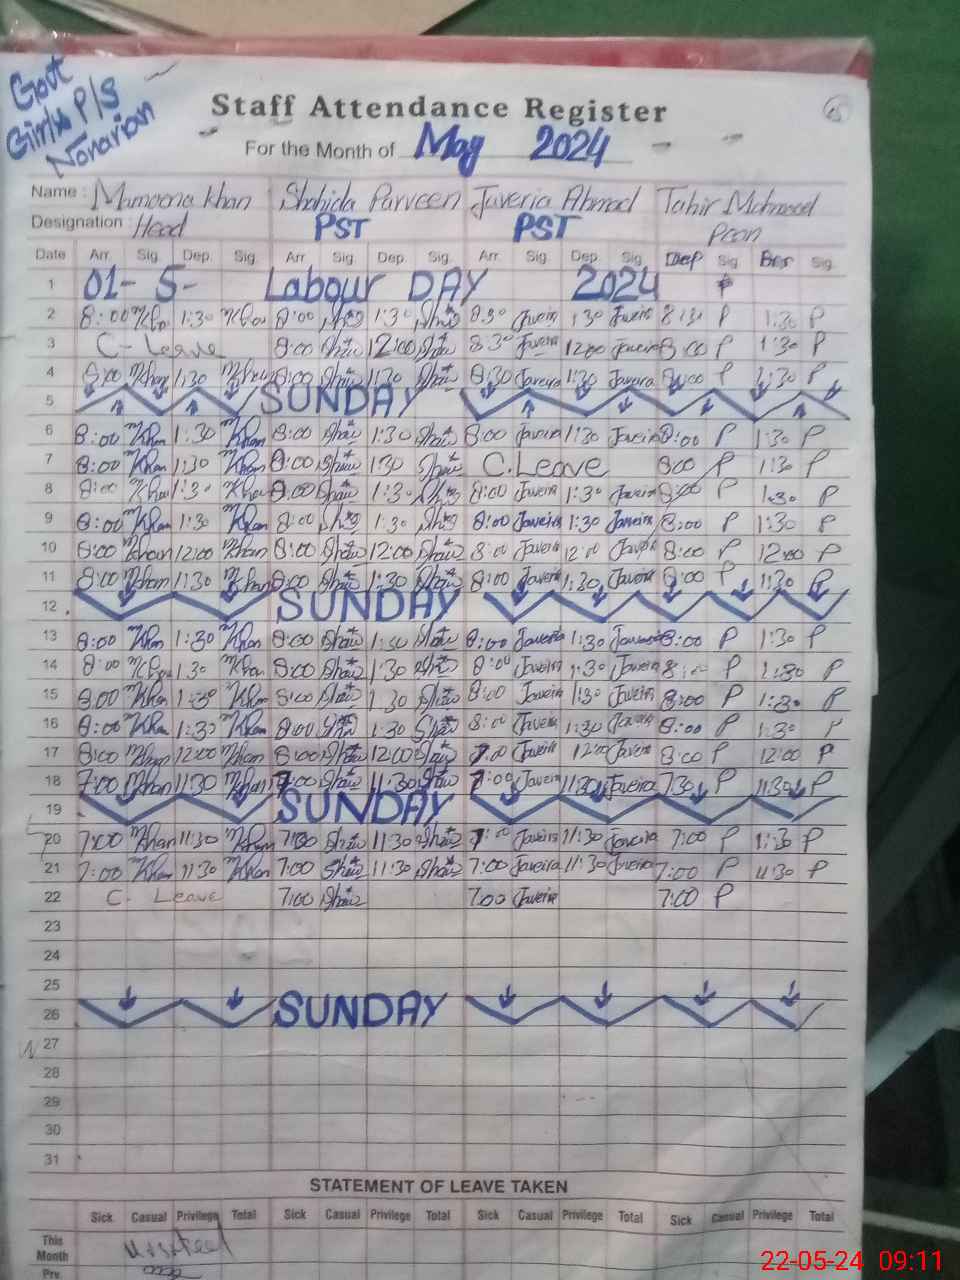 Govt
Girls P/S
Nonarian
Staff Attendance Register
For the Month of May 2024
Name : Mumoona Khan Shahida Parveen Javeria Ahmad Tahir Mehmood
Designation : Head PST PST Peon
Date Arr. Sig. Dep. Sig. Arr. Sig. Dep. Sig. Arr. Sig. Dep. Sig. Dep Sig. Sig.
1 01-5- Labour DAY 2024
2 8:00 1:30 8:00 1:30 8:30 1:30 8:30 P 1:30 P
3 C-Leave 8:00 Shaw 12:00 Shaw 8:30 Javeria 12:00 Javeria 8:00 P 1:30 P
4 8:00 Khan 1:30 Khan 8:00 Shaw 1:30 Shaw 8:30 Javeria 1:30 Javeria 8:00 P 1:30 P
5 SUNDAY
6 8:00 Khan 1:30 Khan 8:00 Shaw 1:30 Shaw 8:00 Javeria 1:30 Javeria 8:00 P 1:30 P
7 8:00 Khan 1:30 Khan 8:00 Shaw 1:30 Shaw C.Leave 8:00 P 1:30 P
8 8:00 Khan 1:30 Khan 8:00 Shaw 1:30 8:00 Javeria 1:30 Javeria 8:00 P 1:30 P
9 8:00 Khan 1:30 Khan 8:00 1:30 8:00 Javeria 1:30 Javeria 8:00 P 1:30 P
10 8:00 Khan 12:00 Khan 8:00 Shaw 12:00 Shaw 8:00 Javeria 12:00 Javeria 8:00 P 12:00 P
11 8:00 Khan 1:30 Khan 8:00 Shaw 1:30 Shaw 8:00 Javeria 1:30 Javeria 8:00 P 1:30 P
12 SUNDAY
13 8:00 Khan 1:30 Khan 8:00 Shaw 1:30 Shaw 8:00 Javeria 1:30 Javeria 8:00 P 1:30 P
14 8:00 Khan 1:30 Khan 8:00 Shaw 1:30 Shaw 8:00 Javeria 1:30 Javeria P 1:30 P
15 8:00 Khan 1:30 Khan 8:00 Shaw 1:30 Shaw 8:00 Javeria 1:30 Javeria 8:00 P 1:30 P
16 8:00 Khan 1:30 Khan 8:00 Shaw 1:30 Shaw 8:00 Javeria 1:30 Javeria 8:00 P 1:30 P
17 8:00 Khan 12:00 Khan 8:00 Shaw 12:00 Shaw 7:00 Javeria 12:00 Javeria 8:00 P 12:00 P
18 7:00 Khan 11:30 Khan 7:00 Shaw 11:30 Shaw 7:00 Javeria 11:30 Javeria 7:30 P 11:30 P
19 SUNDAY
20 7:00 Khan 11:30 Khan 7:00 Shaw 11:30 Shaw 7:00 Javeria 11:30 Javeria 7:00 P 11:30 P
21 7:00 Khan 11:30 Khan 7:00 Shaw 11:30 Shaw 7:00 Javeria 11:30 Javeria 7:00 P 11:30 P
22 C. Leave 7:00 Shaw 7:00 Javeria 7:00 P
23
24
25
26 SUNDAY
27
28
29
30
31
STATEMENT OF LEAVE TAKEN
Sick Casual Privilege Total Sick Casual Privilege Total Sick Casual Privilege Total Sick Casual Privilege Total
This
Month
Pre.
22-05-24 09:11